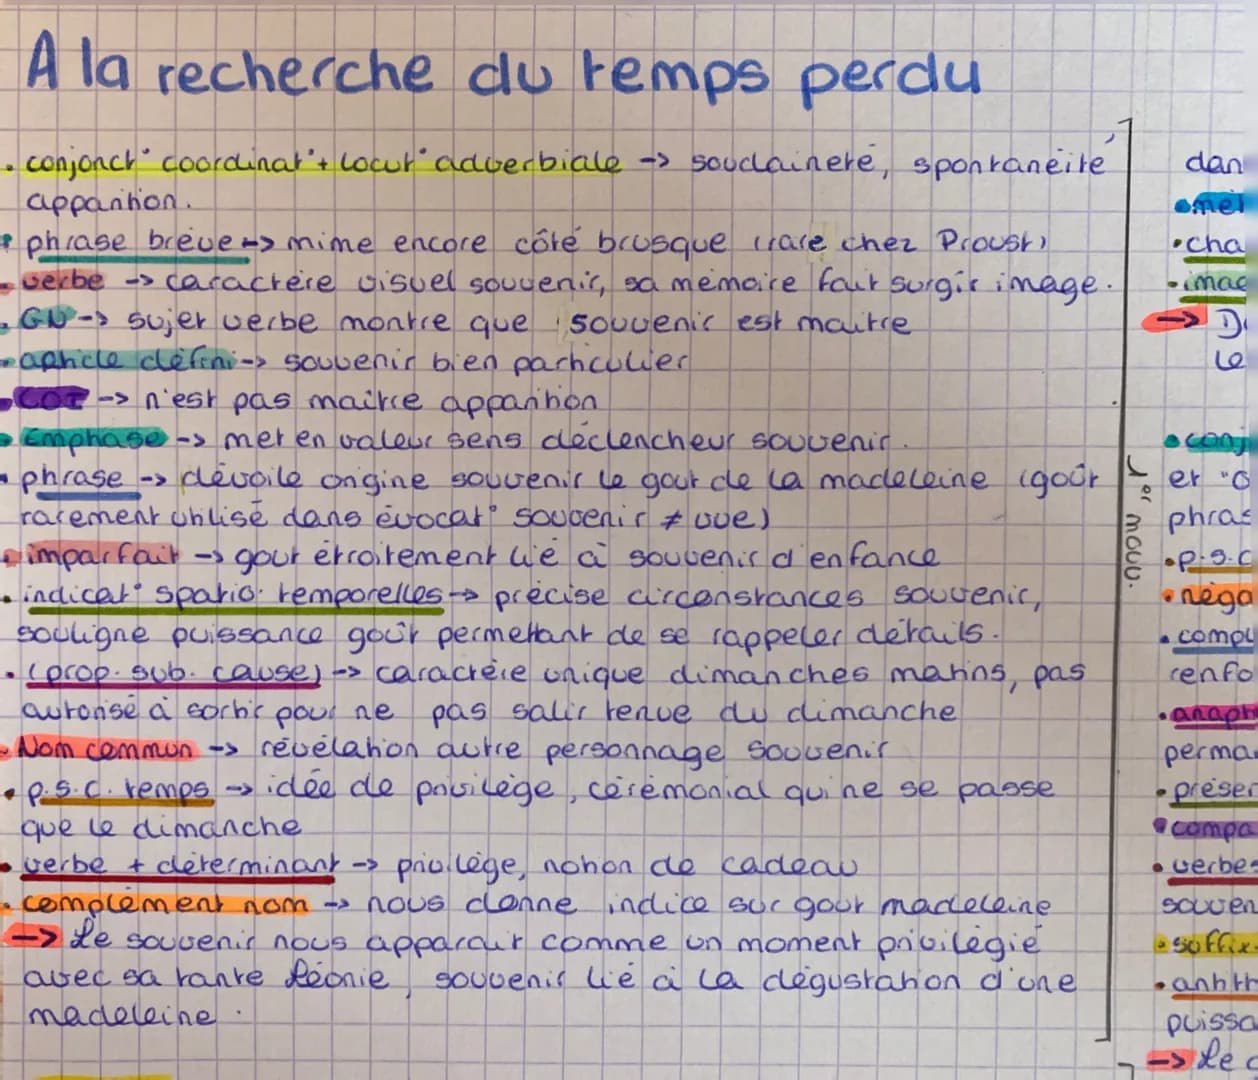 A la recherche du temps perdu
. conjonct° coordinat°+ locut° adverbiale -> soudaineté, spontanéité
apparition.
• phrase brève -> mime encore côté brusque (rare chez Proust)
. verbe -> caractère visuel souvenir, sa mémoire fait surgir image.
. GN -> sujet verbe montre que souvenir est maitre
• article défini -> souvenir bien particulier
• COI -> n'est pas maitre apparition
• Emphase -> met en valeur sens déclencheur souvenir.
• phrase -> dévoile origine souvenir le gout de la madeleine (goût
rarement utilisé dans évocat° souvenir ≠ vue)
• imparfait -> gout étroitement lié à souvenir d'enfance
. indicat° spatio. temporelles -> précise circonstances souvenir,
souligne puissance goût permettant de se rappeler détails.
. (prop. sub. cause) -> caractère unique dimanches matins, pas
autorisé à sortir pour ne pas salir tenue du dimanche
• Nom commun -> révélation autre personnage souvenir
• p.s.c. temps -> idée de privilège, cérémonial qui ne se passe
que le dimanche
• verbe + déterminant -> privilège, notion de cadeau
. complément nom -> nous donne indice sur gout madeleine
-> Le souvenir nous apparait comme un moment privilégié
avec sa tante Léonie, souvenir lié à la dégustation d'une
madeleine.
1er mouv.
dan
• met
• cha
• imag
-> D
le
• conj
et "
phras
• p.s.c
• néga
• compl
renfo
• anaph
perma
• présen
• compa
• verbes
souven
• suffix
• antith
puissa
-> Le